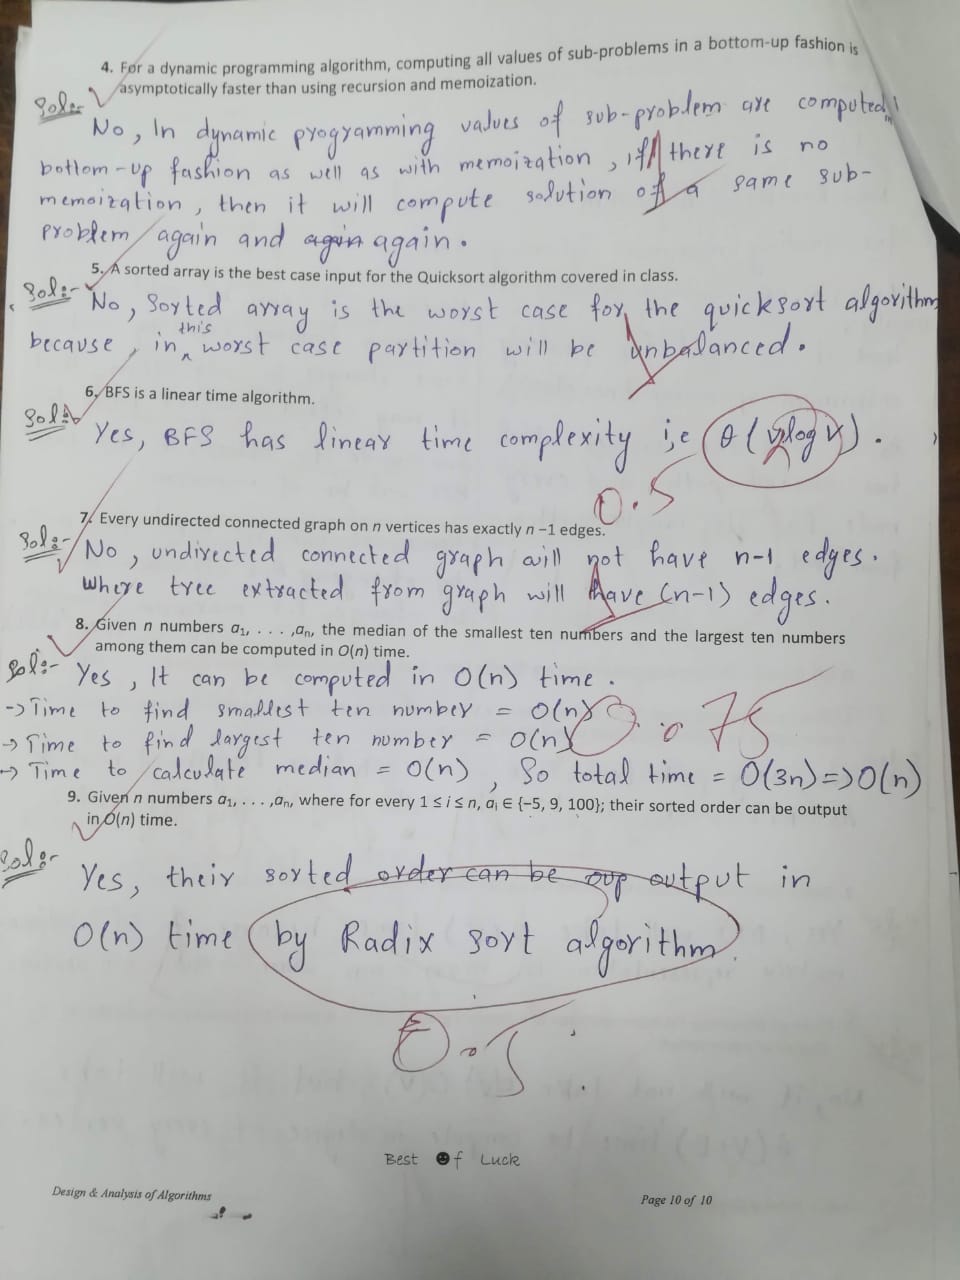 4. For a dynamic programming algorithm, computing all values of sub-problems in a bottom-up fashion is
asymptotically faster than using recursion and memoization.
Sol:-
No, In dynamic programming values of sub-problem are computed in
bottom-up fashion as well as with memoization, if there is no
memoization, then it will compute solution of a same sub-
problem again and again again.
5. A sorted array is the best case input for the Quicksort algorithm covered in class.
Sol:-
No, Sorted array is the worst case for the quicksort algorithm
because, in this worst case partition will be unbalanced.
6. BFS is a linear time algorithm.
Sol:-
Yes, BFS has linear time complexity i,e θ(vlog v).
0.5
7. Every undirected connected graph on n vertices has exactly n –1 edges.
Sol:-
No, undirected connected graph will not have n-1 edges.
Where tree extracted from graph will have (n-1) edges.
8. Given n numbers a1, . . . ,an, the median of the smallest ten numbers and the largest ten numbers
among them can be computed in O(n) time.
Sol:-
Yes, It can be computed in O(n) time.
-> Time to find smallest ten number = O(n)
-> Time to find largest ten number = O(n)
0.75
-> Time to calculate median = O(n), So total time = O(3n)=>O(n)
9. Given n numbers a1, . . . ,an, where for every 1 ≤ i ≤ n, ai ∈ {−5, 9, 100}; their sorted order can be output
in O(n) time.
Sol:-
Yes, their sorted order can be oup output in
O(n) time by Radix sort algorithm.
0.5
Best of Luck
Design & Analysis of Algorithms
Page 10 of 10